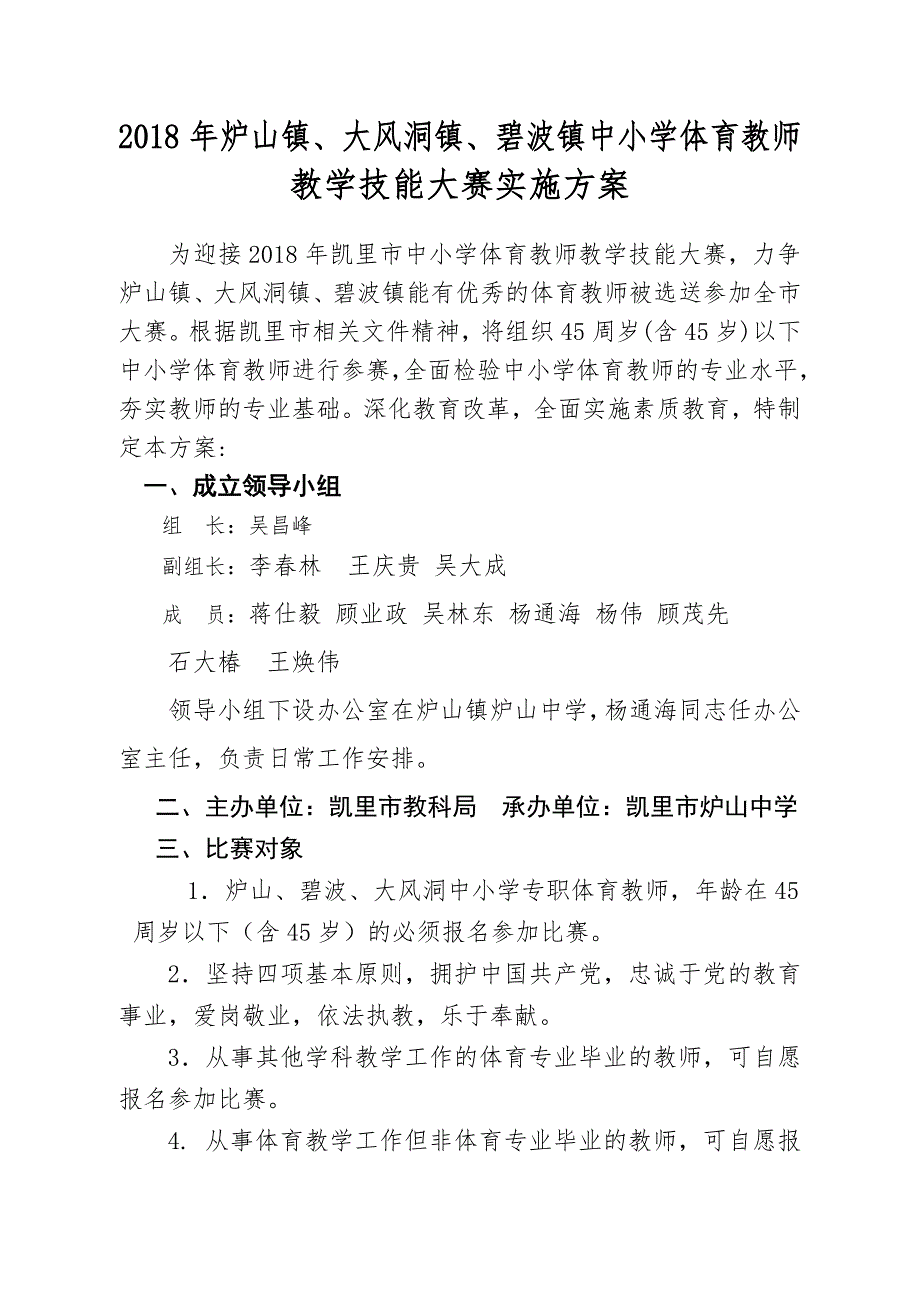 2018 年炉山镇、大风洞镇、碧波镇中小学体育教师
教学技能大赛实施方案
为迎接 2018 年凯里市中小学体育教师教学技能大赛，力争
炉山镇、大风洞镇、碧波镇能有优秀的体育教师被选送参加全市
大赛。根据凯里市相关文件精神，将组织 45 周岁(含 45 岁)以下
中小学体育教师进行参赛,全面检验中小学体育教师的专业水平,
夯实教师的专业基础。深化教育改革，全面实施素质教育，特制
定本方案:
一、成立领导小组
组　长：吴昌峰
副组长：李春林　王庆贵 吴大成
成　员：蒋仕毅 顾业政 吴林东 杨通海 杨伟 顾茂先
石大椿　王焕伟
领导小组下设办公室在炉山镇炉山中学,杨通海同志任办公
室主任，负责日常工作安排。
二、主办单位：凯里市教科局　承办单位：凯里市炉山中学
三、比赛对象
1．炉山、碧波、大风洞中小学专职体育教师，年龄在 45
周岁以下（含 45 岁）的必须报名参加比赛。
2．坚持四项基本原则，拥护中国共产党，忠诚于党的教育
事业，爱岗敬业，依法执教，乐于奉献。
3．从事其他学科教学工作的体育专业毕业的教师，可自愿
报名参加比赛。
4. 从事体育教学工作但非体育专业毕业的教师，可自愿报